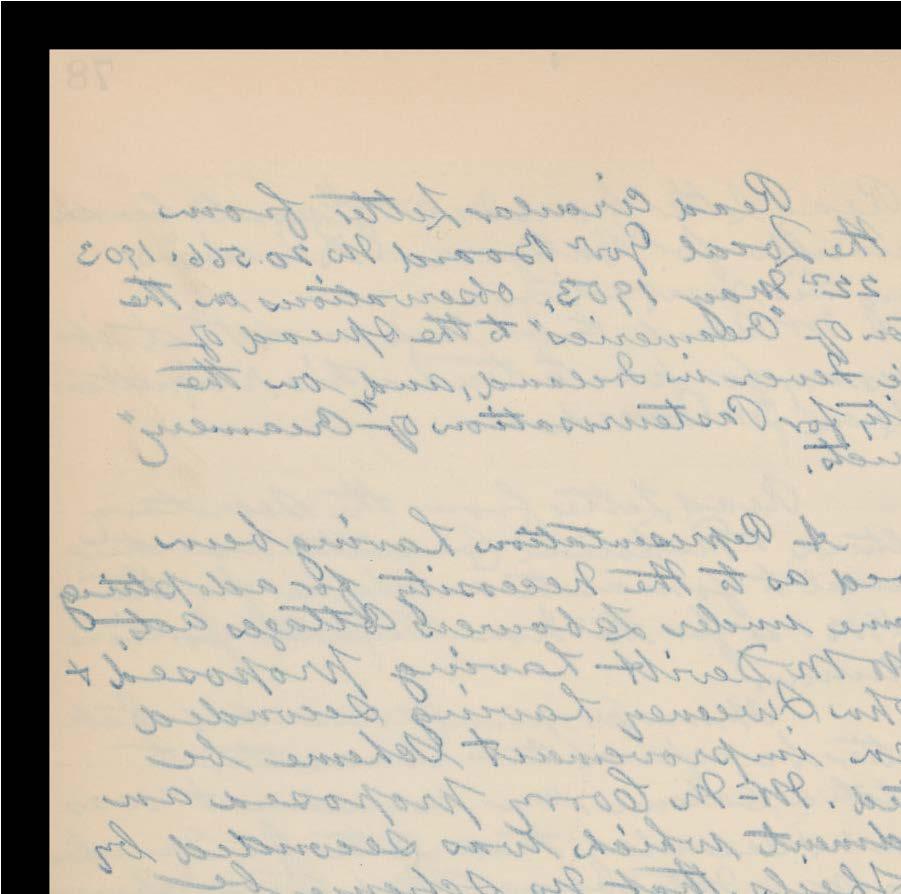 78
Read Circular Letter from
the Local Govt Board No 20.566.1903
22nd May 1903, observations on the
of "Creameries" to the spread of
Fever in Ireland, and on the
for Pasteurisation of "Creamery"
A Representation having been
as to the necessity for adopting
under Labourers Cottages act,
Devitt having proposed &
Sweeney having seconded
improvement Scheme be
Mr McCorry proposed an
which was seconded by
that no scheme be